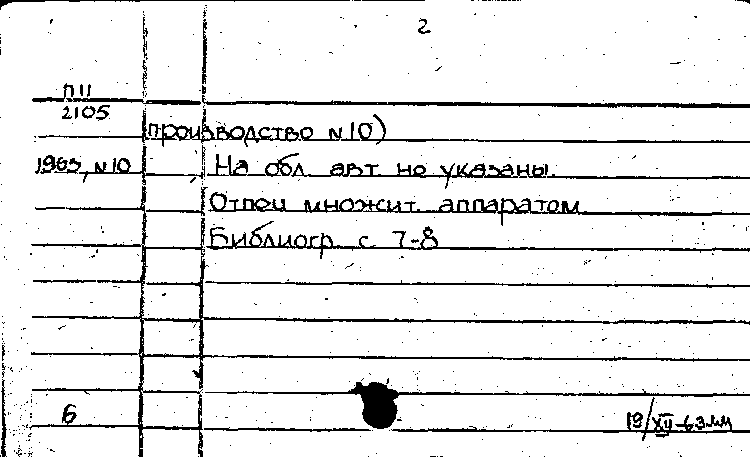 2
П 11
2105
производство N 10)
1963, N 10
На обл. авт. не указаны.
Отпеч множит. аппаратом
Библиогр. с. 7-8
6
19/XII-63